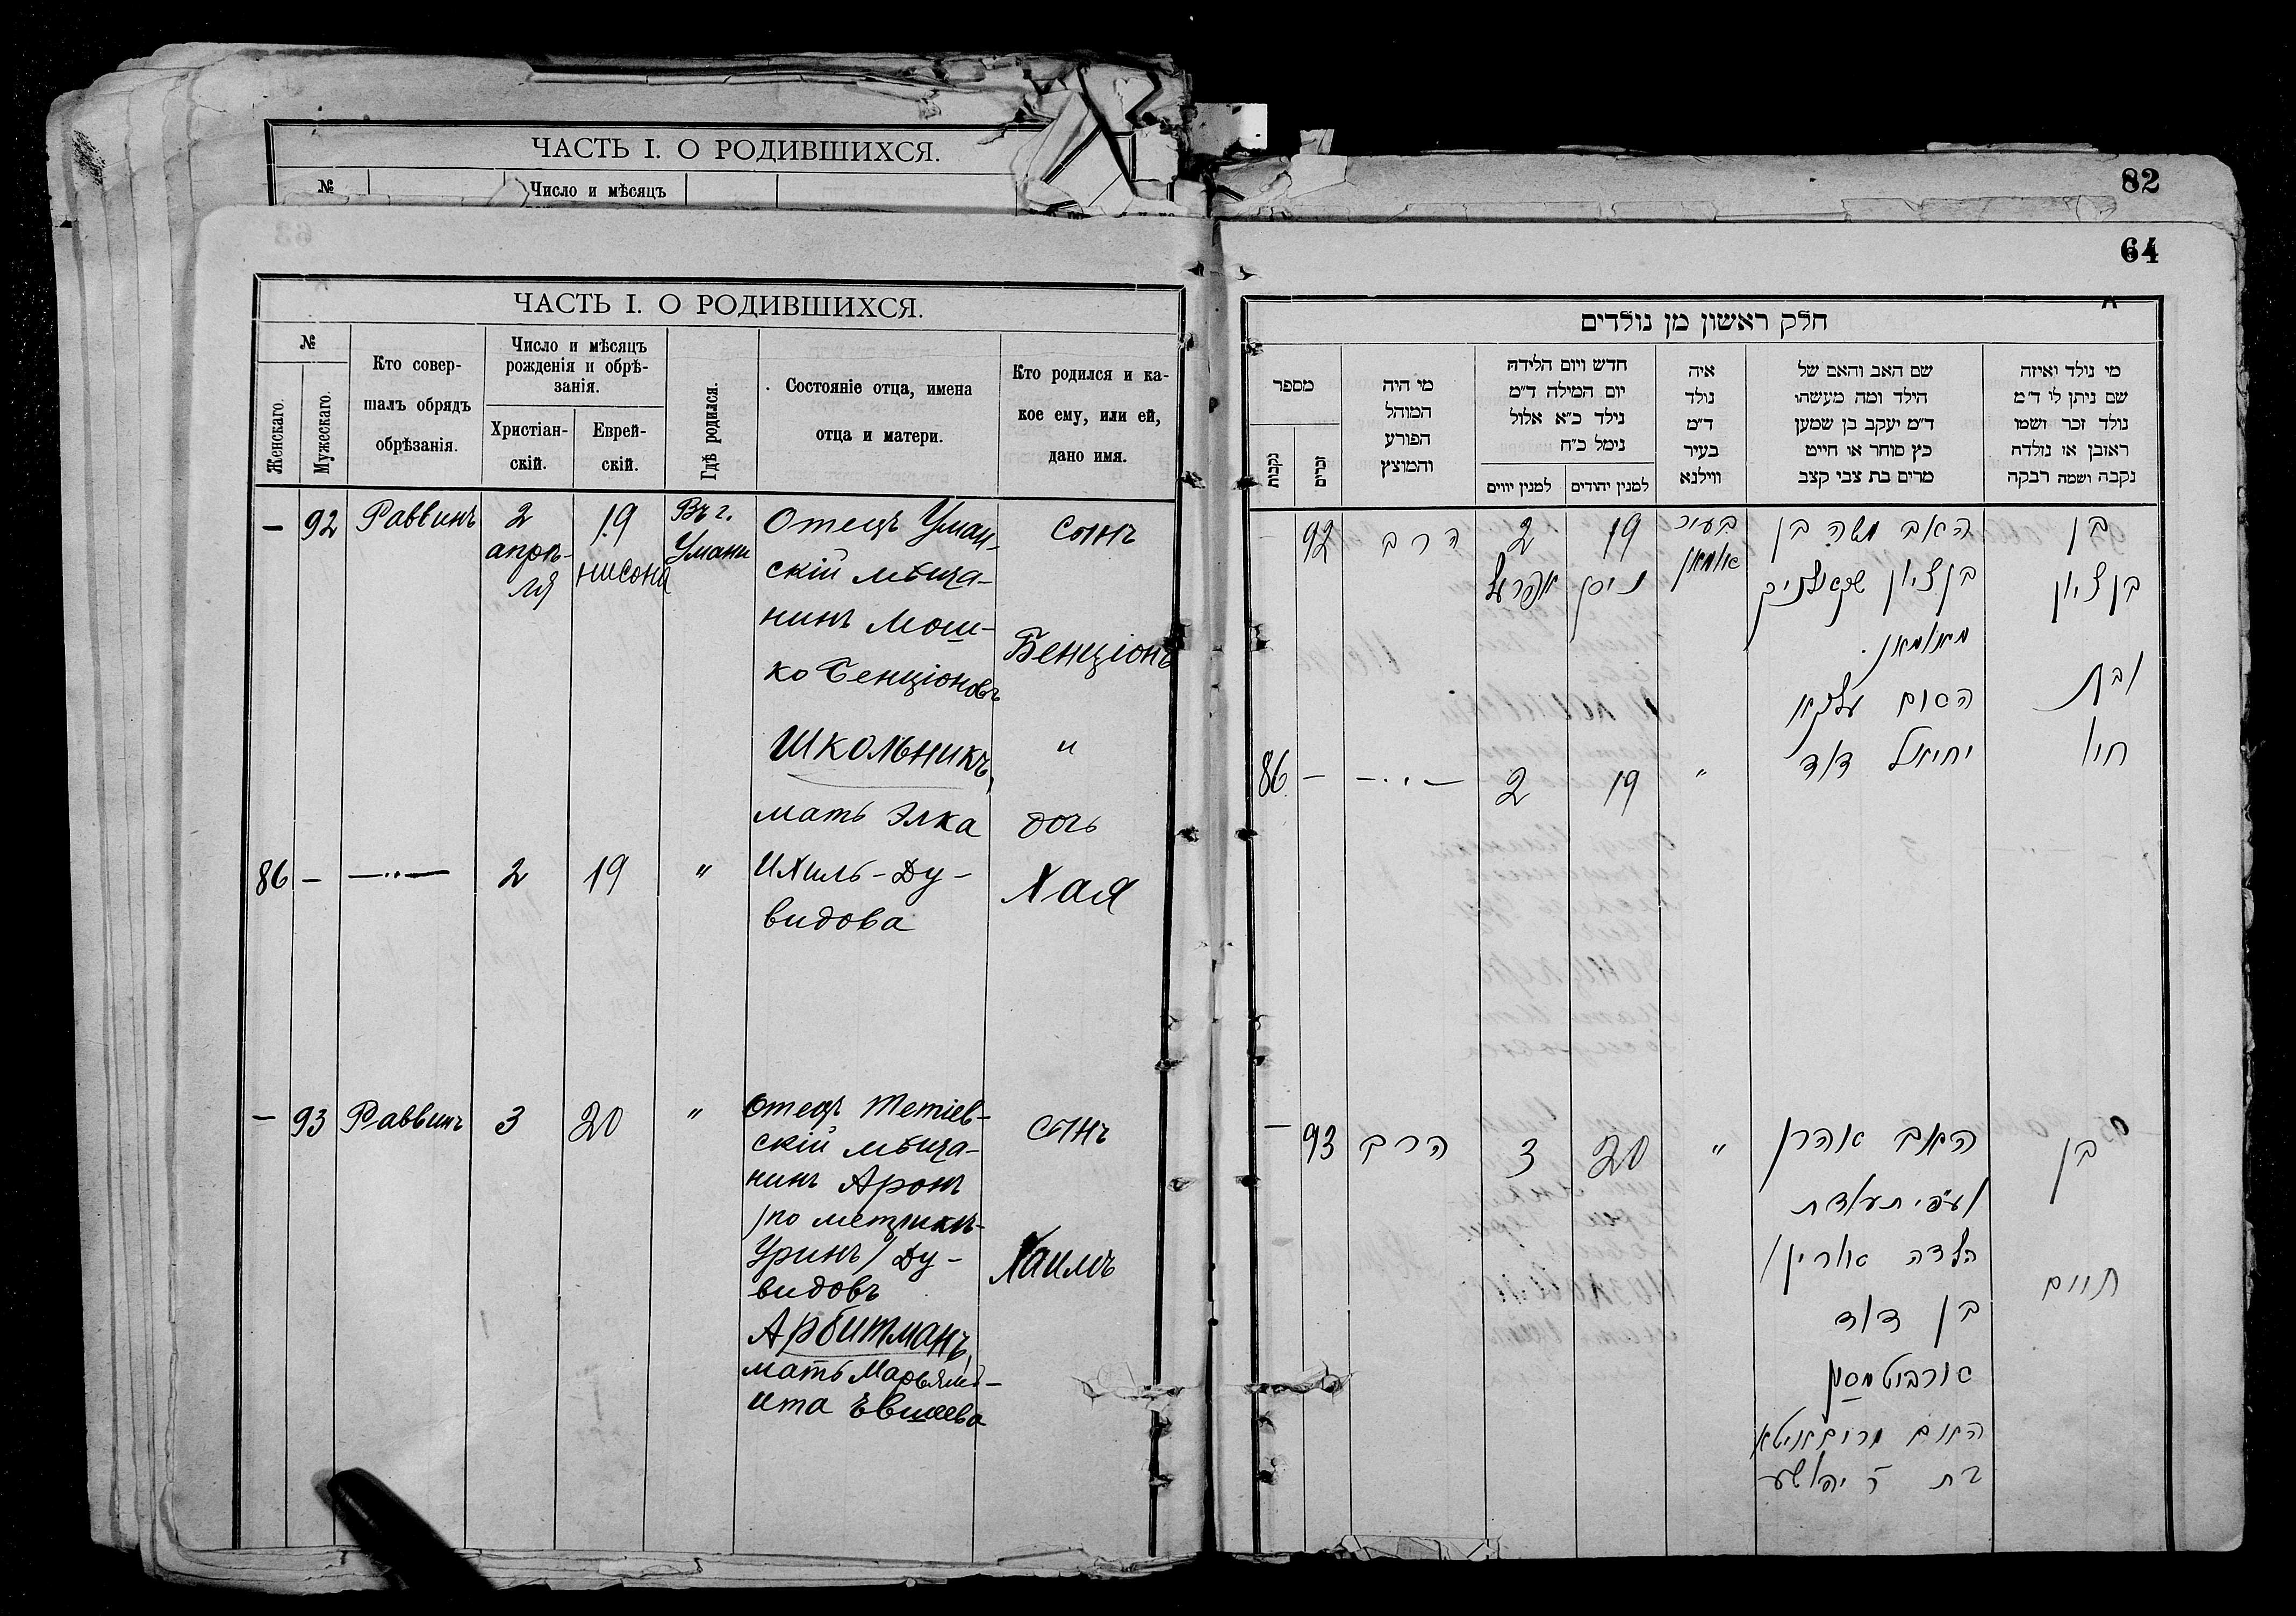 ЧАСТЬ I. О РОДИВШИХСЯ.
№
Число и мѣсяцъ
82
64
ЧАСТЬ I. О РОДИВШИХСЯ.
№
Женскаго.
Мужескаго.
Кто совер-
шалъ обрядъ
обрѣзанія.
Число и мѣсяцъ
рожденія и обрѣ-
занія.
Христіан-
скій.
Еврей-
скій.
Гдѣ родился.
Состояніе отца, имена
отца и матери.
Кто родился и ка-
кое ему, или ей,
дано имя.
— 92 Раввинъ 2 апрѣ-
ля
19
нисона
Въ г.
Умани
Отецъ Уман-
скій мѣща-
нинъ Мош-
ко Бенціоновъ
Школьникъ,
мать Элка
Ихиль-Ду-
видова
сынъ
Бенціонъ
"
дочь
Хая
86 — —"— 2 19 "
— 93 Раввинъ 3 20 "
Отецъ Тетіев-
скій мѣща-
нинъ Аронъ
/по метрикѣ-
Уринъ/ Ду-
видовъ
Арбитманъ,
мать Марьямъ-
Ита Евшеева
сынъ
Хаимъ
חלק ראשון מן נולדים
מספר
נקבות
זכרים
מי היה
המוהל
הפורע
והמוצץ
חדש ויום הלידה
יום המילה ד״מ
נילד כ״א אלול
נימל כ״ח
למנין יווים
למנין יהודים
איה
נולד
ד״מ
בעיר
ווילנא
שם האב והאם של
הילד ומה מעשהו
ד״מ יעקב בן שמען
כץ סוחר או חייט
מרים בת צבי קצב
מי נולד ואיזה
שם ניתן לו ד״מ
נולד זכר ושמו
ראובן או נולדה
נקבה ושמה רבקה
— 92 הרב
2
אפרעל
19
ניסן
בעיר
אומאן
האב משה בן
בן ציון שקאלניק
מאומאן.
האם עלקא
יחיאל דוד
בן
בן ציון
ובת
חיו
86 — —"— 2 19 "
— 93 הרב 3 20 "
האב אהרן
/עפ״י תעודת
הלדה אורין/
בן דוד
ארבוטמאן
האם מרים איטא
בת ר׳ יהושע
בן
חיים